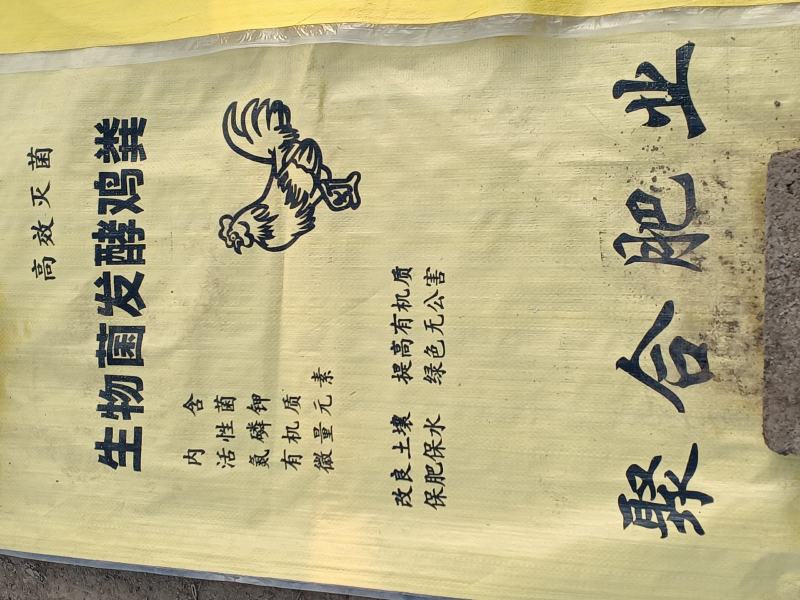 高效灭菌
生物菌发酵鸡粪
内含
活性菌
氮磷钾
有机质
微量元素
改良土壤 提高有机质
保肥保水 绿色无公害
聚合肥业